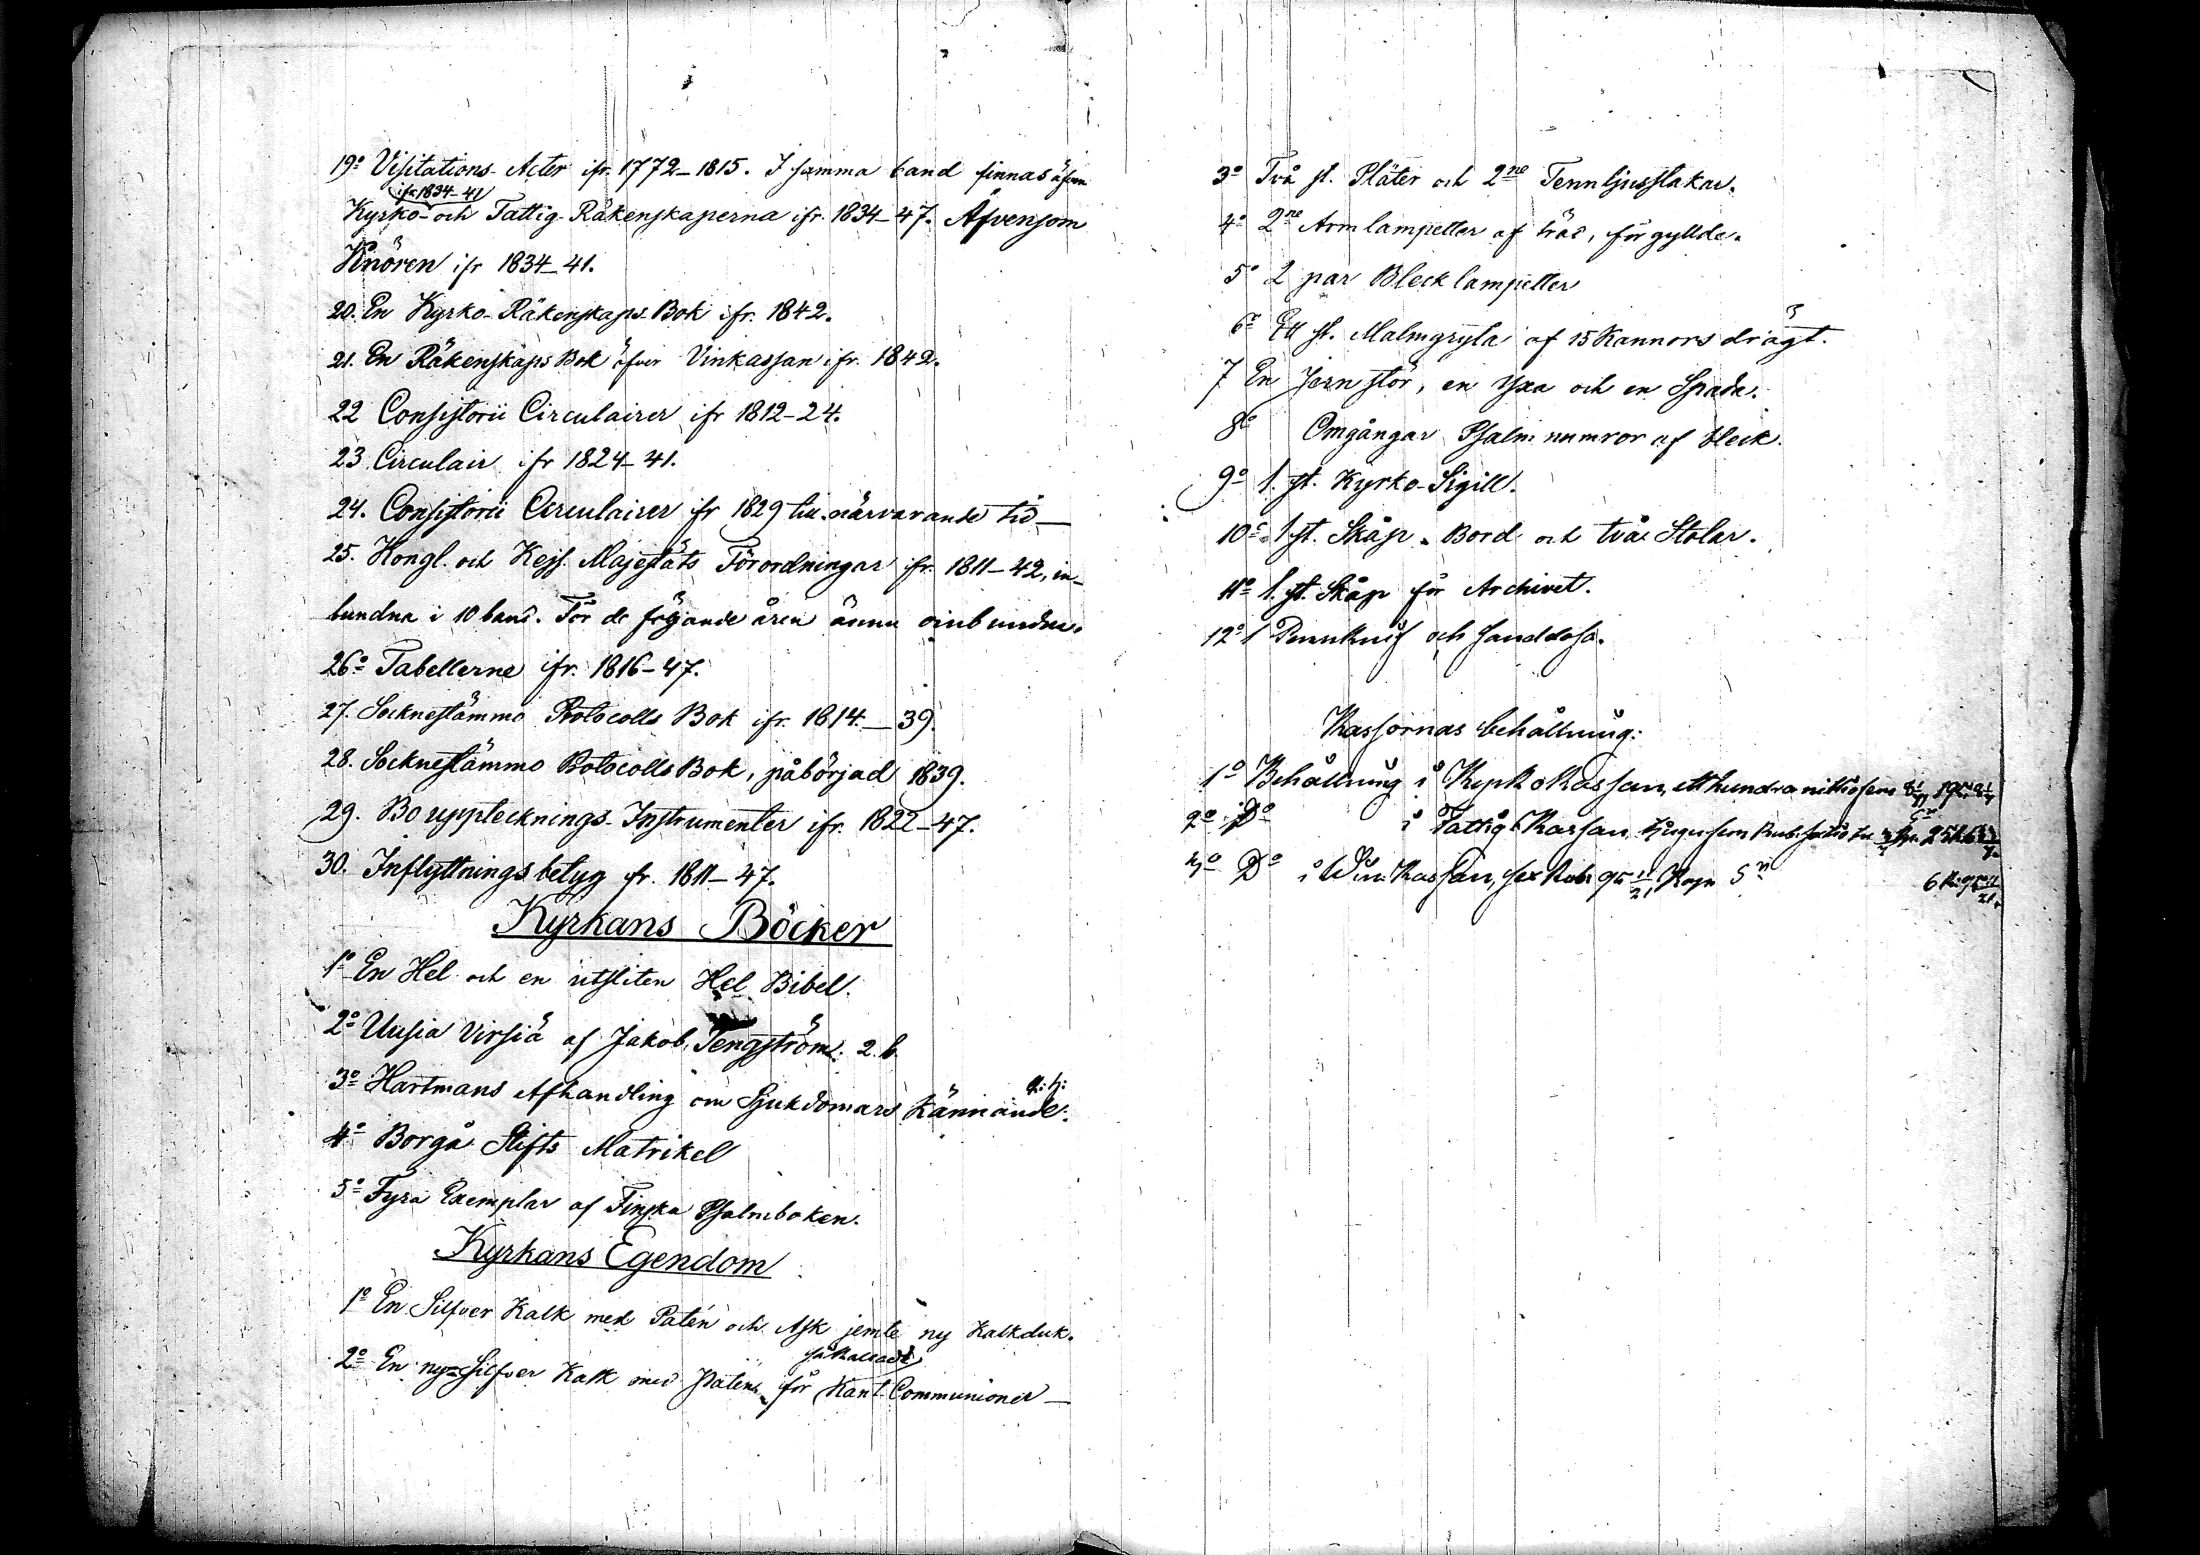 19º Visitations-Acter ifr. 1772–1815. I samma band finnas äfven
ifr 1834–41
Kyrko- och Fattig-Räkenskaperna ifr. 1834–47. Äfvensom
ifr 1834–41.
20. En Kyrko-Räkenskaps-Bok ifr. 1842.
21. En Räkenskaps Bok öfver Vinkassan ifr. 1842.
22 Consistorii Circulairer ifr 1812–24.
23 Circulair ifr 1824–41.
24. Consistorii Circulairer ifr 1829 till närvarande tid—
25. Kongl. och Kejs. Majestäts Förordningar ifr. 1811–42, in-
bundna i 10 band. För de följande åren ännu oinbundna.
26º Tabellerne ifr. 1816–47.
27. Socknestämmo Protocolls Bok ifr. 1814—39.
28. Socknestämmo Protocolls Bok, påbörjad 1839.
29. Boupptecknings-Instrumenter ifr. 1822–47.
30. Inflyttningsbetyg fr. 1811–47.
Kyrkans Böcker
1º En Hel och en utsliten Hel Bibel.
2º Uusia Virsiä af Jakob Tengström. 2. b.
3º Hartmans Afhandling om Sjukdomars Kännande.
4º Borgå Stifts Matrikel
5º Fyra Exemplar af Finska Psalmboken.
Kyrkans Egendom
1º En Silfver Kalk med Patén och Ask jemte ny Kalkduk.
så kallade
2º En ny Silfver Kalk med Patén för Communioner—
3º Två st. Pläter och 2ne Tennljusstakar.
4º 2ne Armlampetter af träd, förgyllde.
5º 2 par Blecklampetter
6º Ett st. Malmgryta af 15 Kannors drägt.
7 En Jernstör, en yxa och en Spada.
8º Omgångar Psalmnumror af bleck.
9º 1. st. Kyrko-Sigill.
10º 1 st. Skåp, Bord och två Stolar.
11º 1. st. Skåp för Archivet.
12º 1 Pennknif och Sanddosa.
Kassornas behållning:
1º Behållning i Kyrkokassan, etthundranittiofem
2º Dº i Fattig Kassan, tjugufem Rub.
3º Dº i Vin Kassan, sex Rub. 95 11/21 Kop. Sr 6 R. 95 11/21.